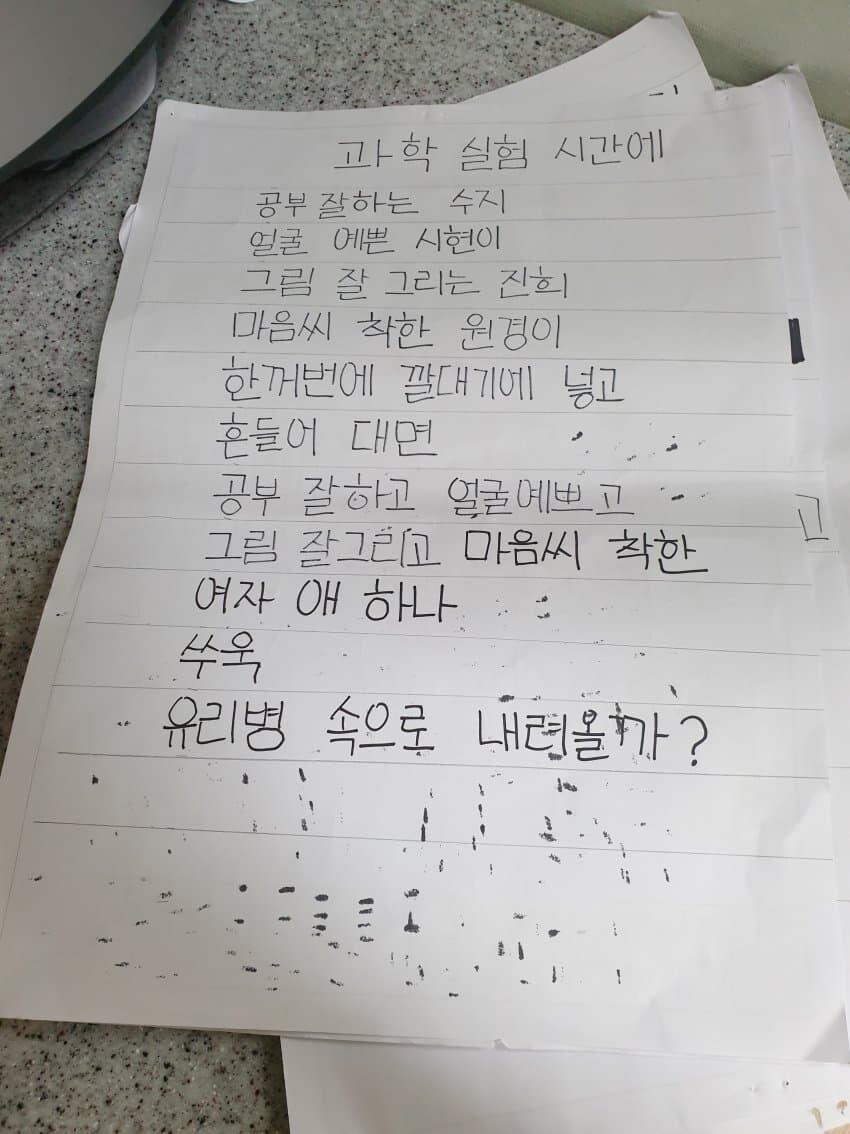 과학 실험 시간에
공부 잘하는 수지
얼굴 예쁜 시현이
그림 잘 그리는 진희
마음씨 착한 원경이
한꺼번에 깔대기에 넣고
흔들어 대면
공부 잘하고 얼굴예쁘고
그림 잘그리고 마음씨 착한
여자 애 하나
쑤욱
유리병 속으로 내려올까?